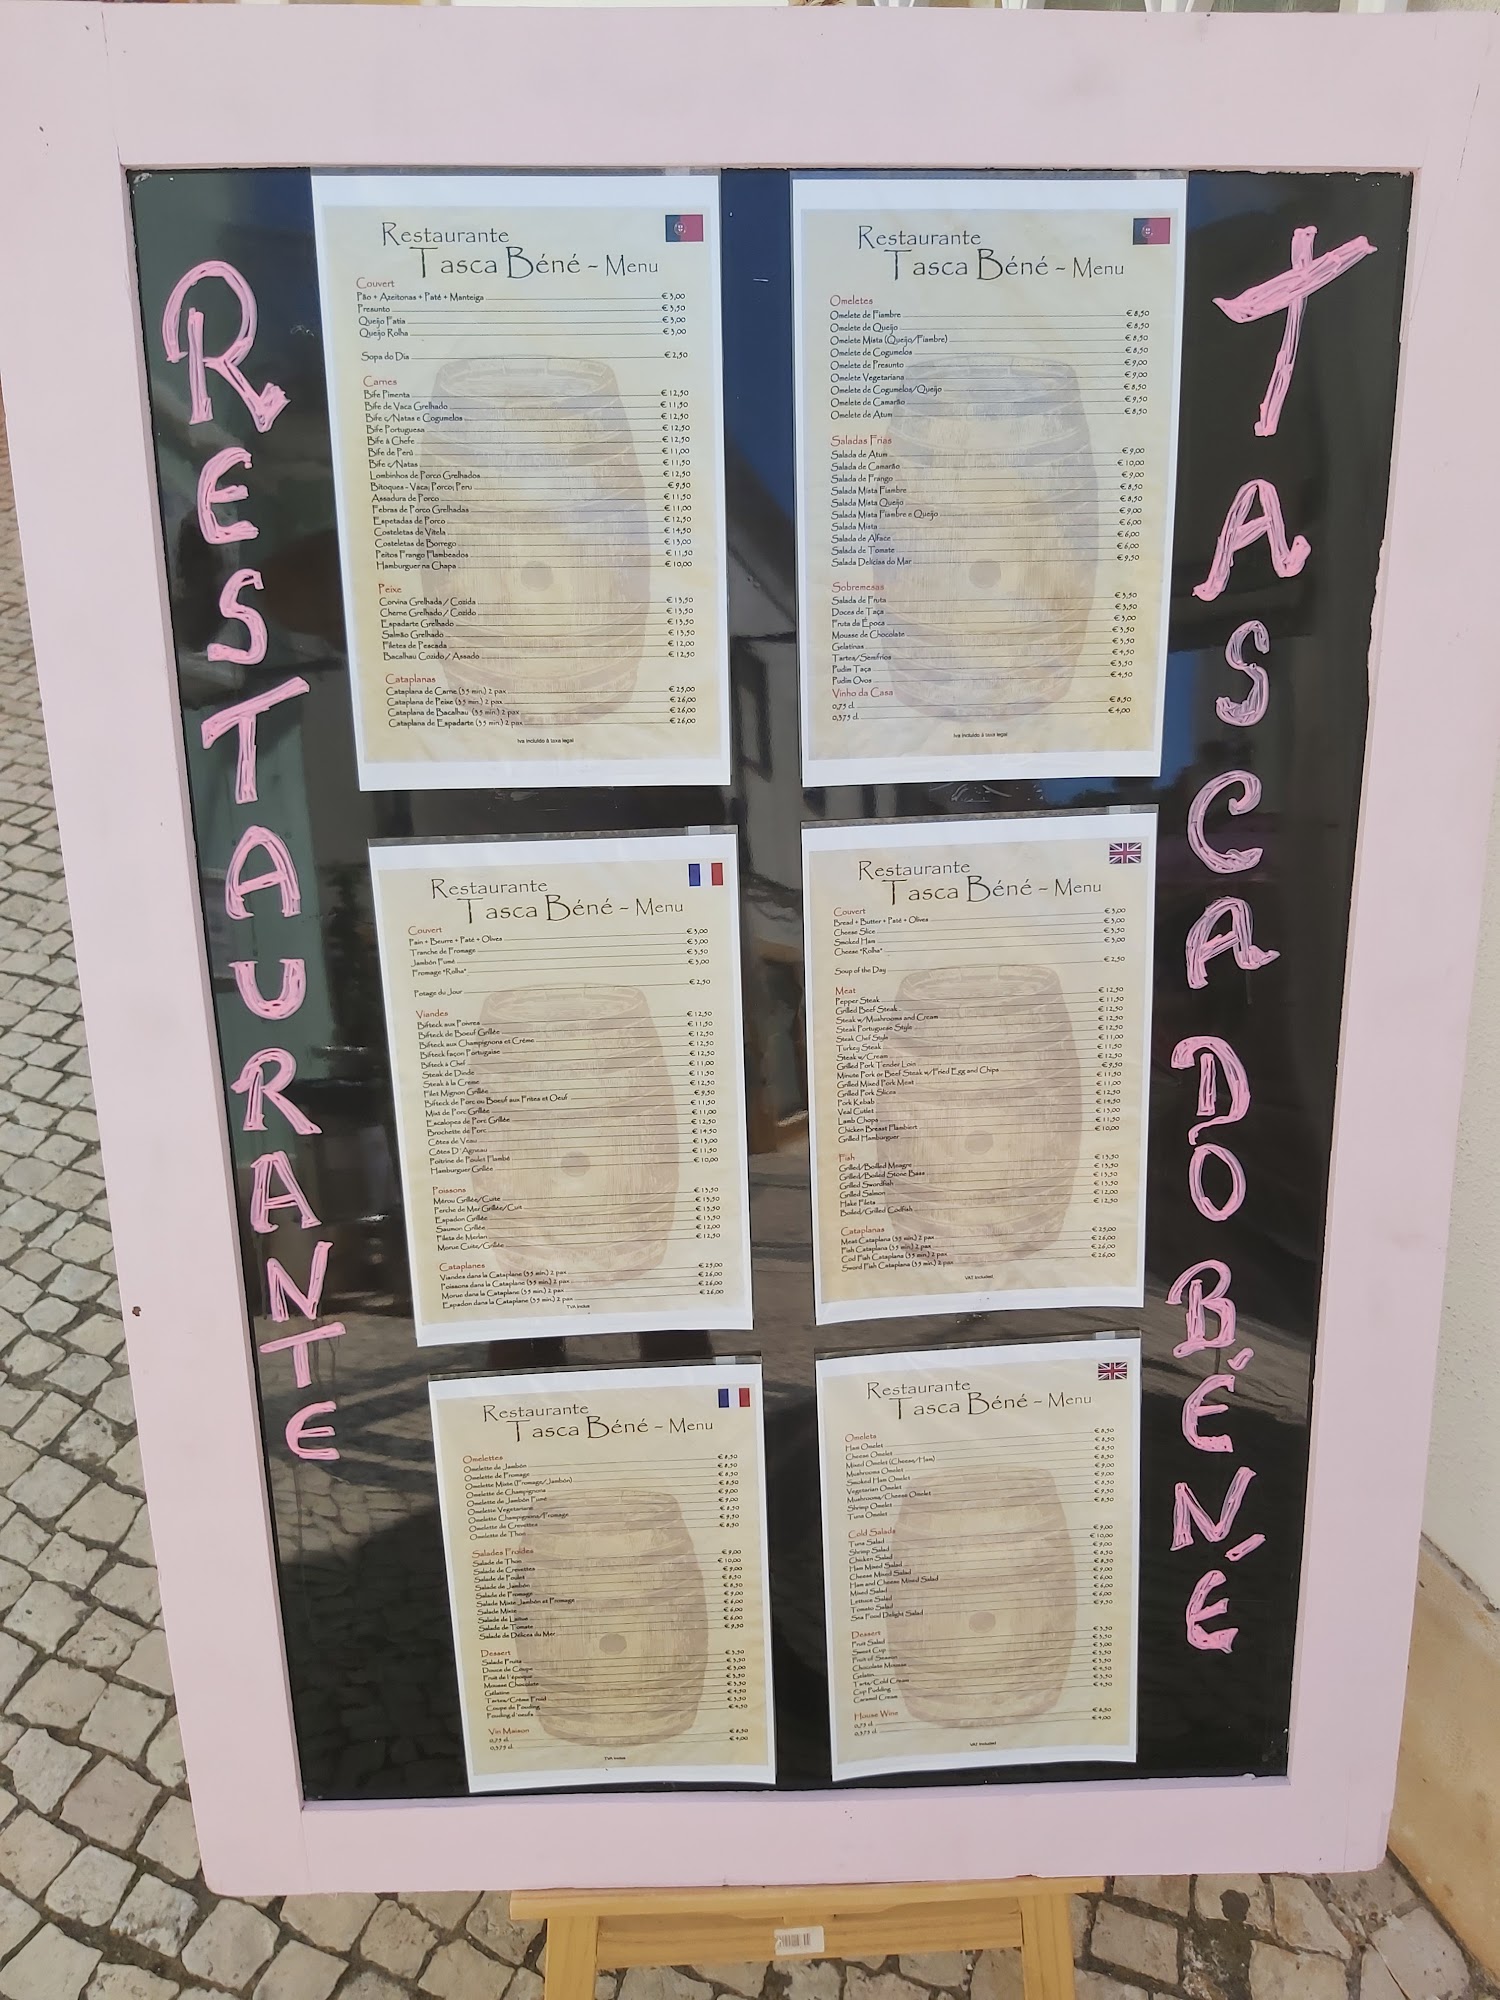 RESTAURANTE
TASCA DO BÉNE
Restaurante
Tasca Béné – Menu
Couvert
Pão + Azeitonas + Paté + Manteiga € 3,00
Presunto € 3,50
Queijo Fatia € 3,00
Queijo Rolha € 3,00
Sopa do Dia € 2,50
Carnes
Bife Pimenta € 12,50
Bife de Vaca Grelhado € 11,50
Bife c/Natas e Cogumelos € 12,50
Bife Portuguesa € 12,50
Bife à Chefe € 12,50
Bife de Perú € 11,00
Bife c/Natas € 11,50
Lombinhos de Porco Grelhados € 12,50
Bitoques - Vaca; Porco; Peru € 9,50
Assadura de Porco € 11,50
Febras de Porco Grelhadas € 11,00
Espetadas de Porco € 12,50
Costeletas de Vitela € 14,50
Costeletas de Borrego € 13,00
Peitos Frango Flambeados € 11,50
Hamburguer na Chapa € 10,00
Peixe
Corvina Grelhada / Cozida € 13,50
Cherne Grelhado / Cozido € 13,50
Espadarte Grelhado € 13,50
Salmão Grelhado € 13,50
Filetes de Pescada € 12,00
Bacalhau Cozido / Assado € 12,50
Cataplanas
Cataplana de Carne (35 min.) 2 pax € 25,00
Cataplana de Peixe (35 min.) 2 pax € 26,00
Cataplana de Bacalhau (35 min.) 2 pax € 26,00
Cataplana de Espadarte (35 min.) 2 pax € 26,00
Iva incluido à taxa legal
Restaurante
Tasca Béné – Menu
Omeletes
Omelete de Fiambre € 8,50
Omelete de Queijo € 8,50
Omelete Mista (Queijo/Fiambre) € 8,50
Omelete de Cogumelos € 8,50
Omelete de Presunto € 9,00
Omelete Vegetariana € 9,00
Omelete de Cogumelos/Queijo € 8,50
Omelete de Camarão € 9,50
Omelete de Atum € 8,50
Saladas Frias
Salada de Atum € 9,00
Salada de Camarão € 10,00
Salada de Frango € 9,00
Salada Mista Fiambre € 8,50
Salada Mista Queijo € 8,50
Salada Mista Fiambre e Queijo € 9,00
Salada Mista € 6,00
Salada de Alface € 6,00
Salada de Tomate € 6,00
Salada Delícias do Mar € 9,50
Sobremesas
Salada de Fruta € 3,50
Doces de Taça € 3,50
Fruta da Época € 3,00
Mousse de Chocolate € 3,50
Gelatinas € 3,50
Tartes/Semifrios € 4,50
Pudim Taça € 3,50
Pudim Ovos € 4,50
Vinho da Casa
0,75 cl. € 8,50
0,375 cl. € 4,00
Iva incluido à taxa legal
Restaurante
Tasca Béné – Menu
Couvert
Pain + Beurre + Paté + Olives € 3,00
Tranche de Fromage € 3,00
Jambón Fumé € 3,50
Fromage "Rolha" € 3,00
Potage du Jour € 2,50
Viandes
Bifteck aux Poivres € 12,50
Bifteck de Boeuf Grillée € 11,50
Bifteck aux Champignons et Crème € 12,50
Bifteck façon Portugaise € 12,50
Bifteck à Chef € 12,50
Steak de Dinde € 11,00
Steak à la Creme € 11,50
Filet Mignon Grillée € 12,50
Bifteck de Porc ou Boeuf aux Frites et Oeuf € 9,50
Mixt de Porc Grillée € 11,50
Escalopes de Porc Grillée € 11,00
Brochette de Porc € 12,50
Côtes de Veau € 14,50
Côtes D'Agneau € 13,00
Poitrine de Poulet Flambé € 11,50
Hamburguer Grillée € 10,00
Poissons
Mérou Grillée/Cuite € 13,50
Perche de Mer Grillée/Cuit € 13,50
Espadon Grillée € 13,50
Saumon Grillée € 13,50
Filets de Merlan € 12,00
Morue Cuite/Grillée € 12,50
Cataplanes
Viandes dans la Cataplane (35 min.) 2 pax € 25,00
Poissons dans la Cataplane (35 min.) 2 pax € 26,00
Morue dans la Cataplane (35 min.) 2 pax € 26,00
Espadon dans la Cataplane (35 min.) 2 pax € 26,00
TVA inclus
Restaurante
Tasca Béné – Menu
Couvert
Bread + Butter + Paté + Olives € 3,00
Cheese Slice € 3,00
Smoked Ham € 3,50
Cheese "Rolha" € 3,00
Soup of the Day € 2,50
Meat
Pepper Steak € 12,50
Grilled Beef Steak € 11,50
Steak w/Mushrooms and Cream € 12,50
Steak Portuguese Style € 12,50
Steak Chef Style € 12,50
Turkey Steak € 11,00
Steak w/Cream € 11,50
Grilled Pork Tender Loin € 12,50
Minute Pork or Beef Steak w/Fried Egg and Chips € 9,50
Grilled Mixed Pork Meat € 11,50
Grilled Pork Slices € 11,00
Pork Kebab € 12,50
Veal Cutlet € 14,50
Lamb Chops € 13,00
Chicken Breast Flambiert € 11,50
Grilled Hamburguer € 10,00
Fish
Grilled/Boilled Meagre € 13,50
Grilled/Boiled Stone Bass € 13,50
Grilled Swordfish € 13,50
Grilled Salmon € 13,50
Hake Filets € 12,00
Boiled/Grilled Codfish € 12,50
Cataplanas
Meat Cataplana (35 min.) 2 pax € 25,00
Fish Cataplana (35 min.) 2 pax € 26,00
Cod Fish Cataplana (35 min.) 2 pax € 26,00
Sword Fish Cataplana (35 min.) 2 pax € 26,00
VAT Included
Restaurante
Tasca Béné – Menu
Omelettes
Omelette de Jambón € 8,50
Omelette de Fromage € 8,50
Omelette Mixte (Fromage/Jambón) € 8,50
Omelette de Champignons € 8,50
Omelette de Jambón Fumé € 9,00
Omelette Vegetarienne € 9,00
Omelette Champignons/Fromage € 8,50
Omelette de Crevettes € 9,50
Omelette de Thon € 8,50
Salades Froides
Salade de Thon € 9,00
Salade de Crevettes € 10,00
Salade de Poulet € 9,00
Salade de Jambón € 8,50
Salade de Fromage € 8,50
Salade Mixte Jambón et Fromage € 9,00
Salade Mixte € 6,00
Salade de Laitue € 6,00
Salade de Tomate € 6,00
Salade de Délices du Mer € 9,50
Dessert
Salade Fruits € 3,50
Douce de Coupe € 3,50
Fruit de l'époque € 3,00
Mousse Chocolate € 3,50
Gélatine € 3,50
Tartes/Crème Froid € 4,50
Coupe de Pouding € 3,50
Pouding d'oeufs € 4,50
Vin Maison
0,75 cl. € 8,50
0,375 cl. € 4,00
TVA inclus
Restaurante
Tasca Béné – Menu
Omelets
Ham Omelet € 8,50
Cheese Omelet € 8,50
Mixed Omelet (Cheese/Ham) € 8,50
Mushrooms Omelet € 8,50
Smoked Ham Omelet € 9,00
Vegetarian Omelet € 9,00
Mushrooms/Cheese Omelet € 8,50
Shrimp Omelet € 9,50
Tuna Omelet € 8,50
Cold Salads
Tuna Salad € 9,00
Shrimp Salad € 10,00
Chicken Salad € 9,00
Ham Mixed Salad € 8,50
Cheese Mixed Salad € 8,50
Ham and Cheese Mixed Salad € 9,00
Mixed Salad € 6,00
Lettuce Salad € 6,00
Tomato Salad € 6,00
Sea Food Delight Salad € 9,50
Dessert
Fruit Salad € 3,50
Sweet Cup € 3,50
Fruit of Season € 3,00
Chocolate Mousse € 3,50
Gelatin € 3,50
Tarts/Cold Cream € 4,50
Cup Pudding € 3,50
Caramel Cream € 4,50
House Wine
0,75 cl. € 8,50
0,375 cl. € 4,00
VAT Included